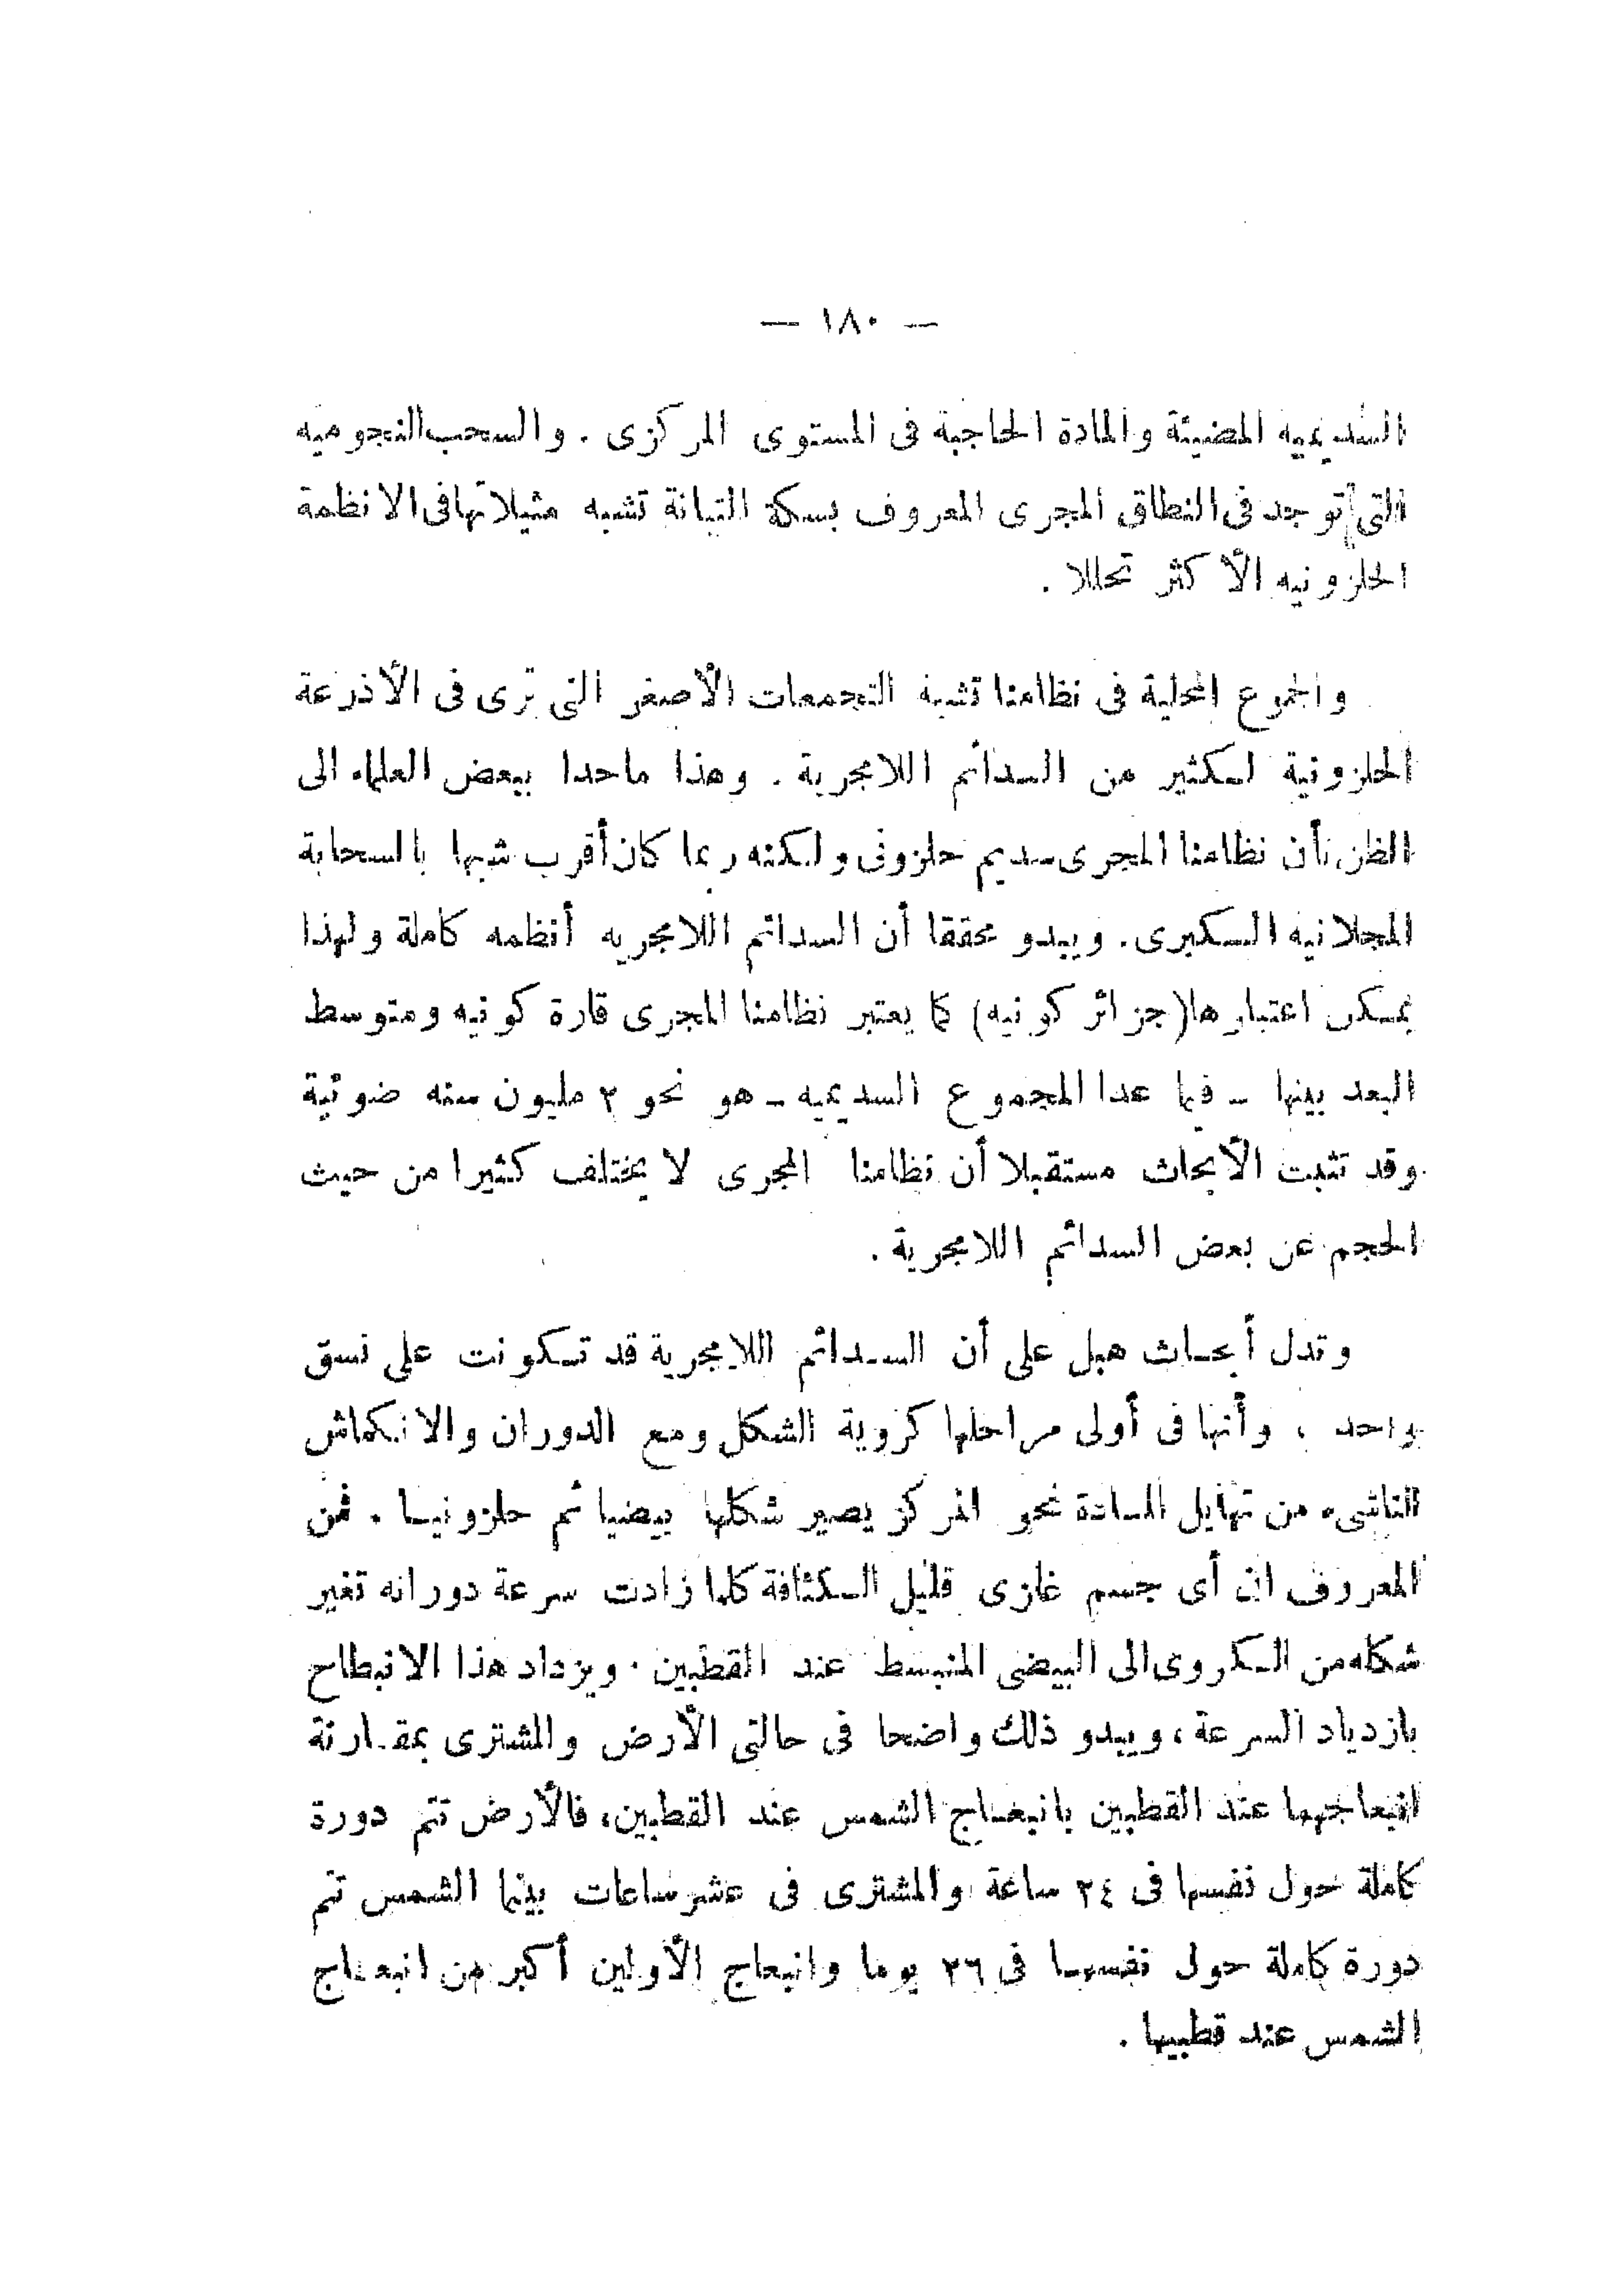 — ١٨٠ —
السديميه المضيئة والمادة الحاجبة فى المستوى المركزى . والسحب النجوميه
التى توجد فى النطاق المجرى المعروف بسكة التبانة تشبه مثيلاتها فى الانظمة
الحلزونيه الأكثر تحللا .
والجموع المحلية فى نظامنا تشبه التجمعات الأصغر التى ترى فى الأذرعة
الحلزونية لكثير من السدائم اللامجرية . وهذا ماحدا ببعض العلماء الى
الظن بأن نظامنا المجرى سديم حلزونى ولكنه ربما كان أقرب شبها بالسحابة
المجلانيه الكبرى . ويبدو محققا أن السدائم اللامجريه أنظمه كاملة ولهذا
يمكن اعتبارها (جزائر كونيه) كما يعتبر نظامنا المجرى قارة كونيه ومتوسط
البعد بينها - فيما عدا المجموع السديميه - هو نحو ٢ مليون سنه ضوئية
وقد تثبت الأبحاث مستقبلا أن نظامنا المجرى لا يختلف كثيرا من حيث
الحجم عن بعض السدائم اللامجرية .
وتدل أبحاث هبل على أن السدائم اللامجرية قد تكونت على نسق
واحد ، وأنها فى أولى مراحلها كروية الشكل ومع الدوران والانكماش
الناشىء من تهايل المادة نحو المركز يصير شكلها بيضيا ثم حلزونيا . فمن
المعروف ان أى جسم غازى قليل الكثافة كلما زادت سرعة دورانه تغير
شكله من الكروى الى البيضى المنبسط عند القطبين . ويزداد هذا الانبطاح
بازدياد السرعة ، ويبدو ذلك واضحا فى حالتى الأرض والمشترى بمقارنة
انبعاجهما عند القطبين بانبعاج الشمس عند القطبين، فالأرض تتم دورة
كاملة حول نفسها فى ٢٤ ساعة والمشترى فى عشر ساعات بينما الشمس تتم
دورة كاملة حول نفسها فى ٢٦ يوما وانبعاج الأولين أكبر من انبعاج
الشمس عند قطبيها .